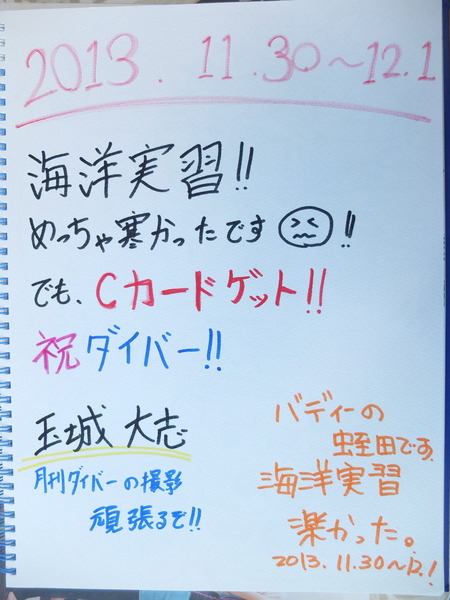 2013.11.30~12.1
海洋実習!!
めっちゃ寒かったです!!
でも、Cカードゲット!!
祝ダイバー!!
玉城 大志
月刊ダイバーの撮影
頑張るぞ!!
バディーの
蛭田です。
海洋実習
楽かった。
2013.11.30~12.1